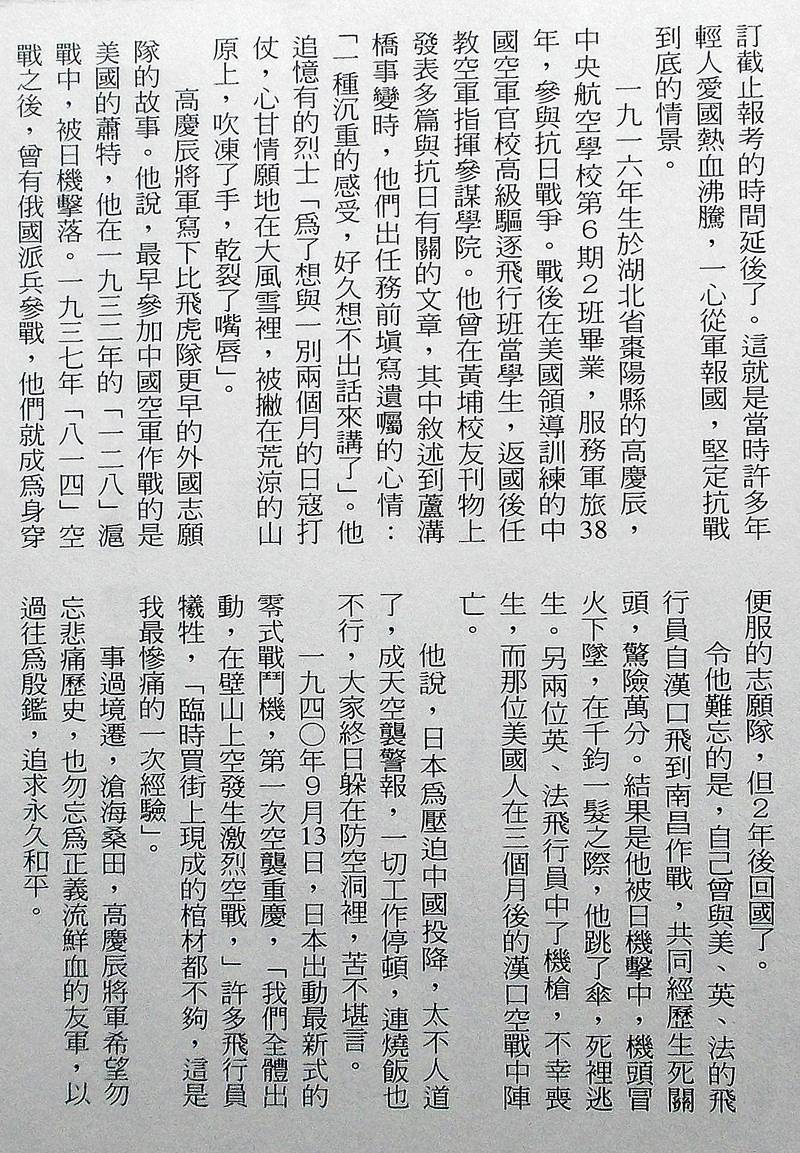 訂截止報考的時間延後了。這就是當時許多年
輕人愛國熱血沸騰，一心從軍報國，堅定抗戰
到底的情景。
一九一六年生於湖北省棗陽縣的高慶辰，
中央航空學校第6期2班畢業，服務軍旅38
年，參與抗日戰爭。戰後在美國領導訓練的中
國空軍官校高級驅逐飛行班當學生，返國後任
教空軍指揮參謀學院。他曾在黃埔校友刊物上
發表多篇與抗日有關的文章，其中敘述到蘆溝
橋事變時，他們出任務前填寫遺囑的心情：
「一種沉重的感受，好久想不出話來講了」。他
追憶有的烈士「爲了想與一別兩個月的日寇打
仗，心甘情願地在大風雪裡，被撇在荒涼的山
原上，吹凍了手，乾裂了嘴唇」。
高慶辰將軍寫下比飛虎隊更早的外國志願
隊的故事。他說，最早參加中國空軍作戰的是
美國的蕭特，他在一九三二年的「一二八」滬
戰中，被日機擊落。一九三七年「八一四」空
戰之後，曾有俄國派兵參戰，他們就成爲身穿
便服的志願隊，但2年後回國了。
令他難忘的是，自己曾與美、英、法的飛
行員自漢口飛到南昌作戰，共同經歷生死關
頭，驚險萬分。結果是他被日機擊中，機頭冒
火下墜，在千鈞一髮之際，他跳了傘，死裡逃
生。另兩位英、法飛行員中了機槍，不幸喪
生，而那位美國人在三個月後的漢口空戰中陣
亡。
他說，日本爲壓迫中國投降，太不人道
了，成天空襲警報，一切工作停頓，連燒飯也
不行，大家終日躲在防空洞裡，苦不堪言。
一九四〇年9月13日，日本出動最新式的
零式戰鬥機，第一次空襲重慶，「我們全體出
動，在壁山上空發生激烈空戰，」許多飛行員
犧牲，「臨時買街上現成的棺材都不夠，這是
我最慘痛的一次經驗」。
事過境遷，滄海桑田，高慶辰將軍希望勿
忘悲痛歷史，也勿忘爲正義流鮮血的友軍，以
過往爲殷鑑，追求永久和平。